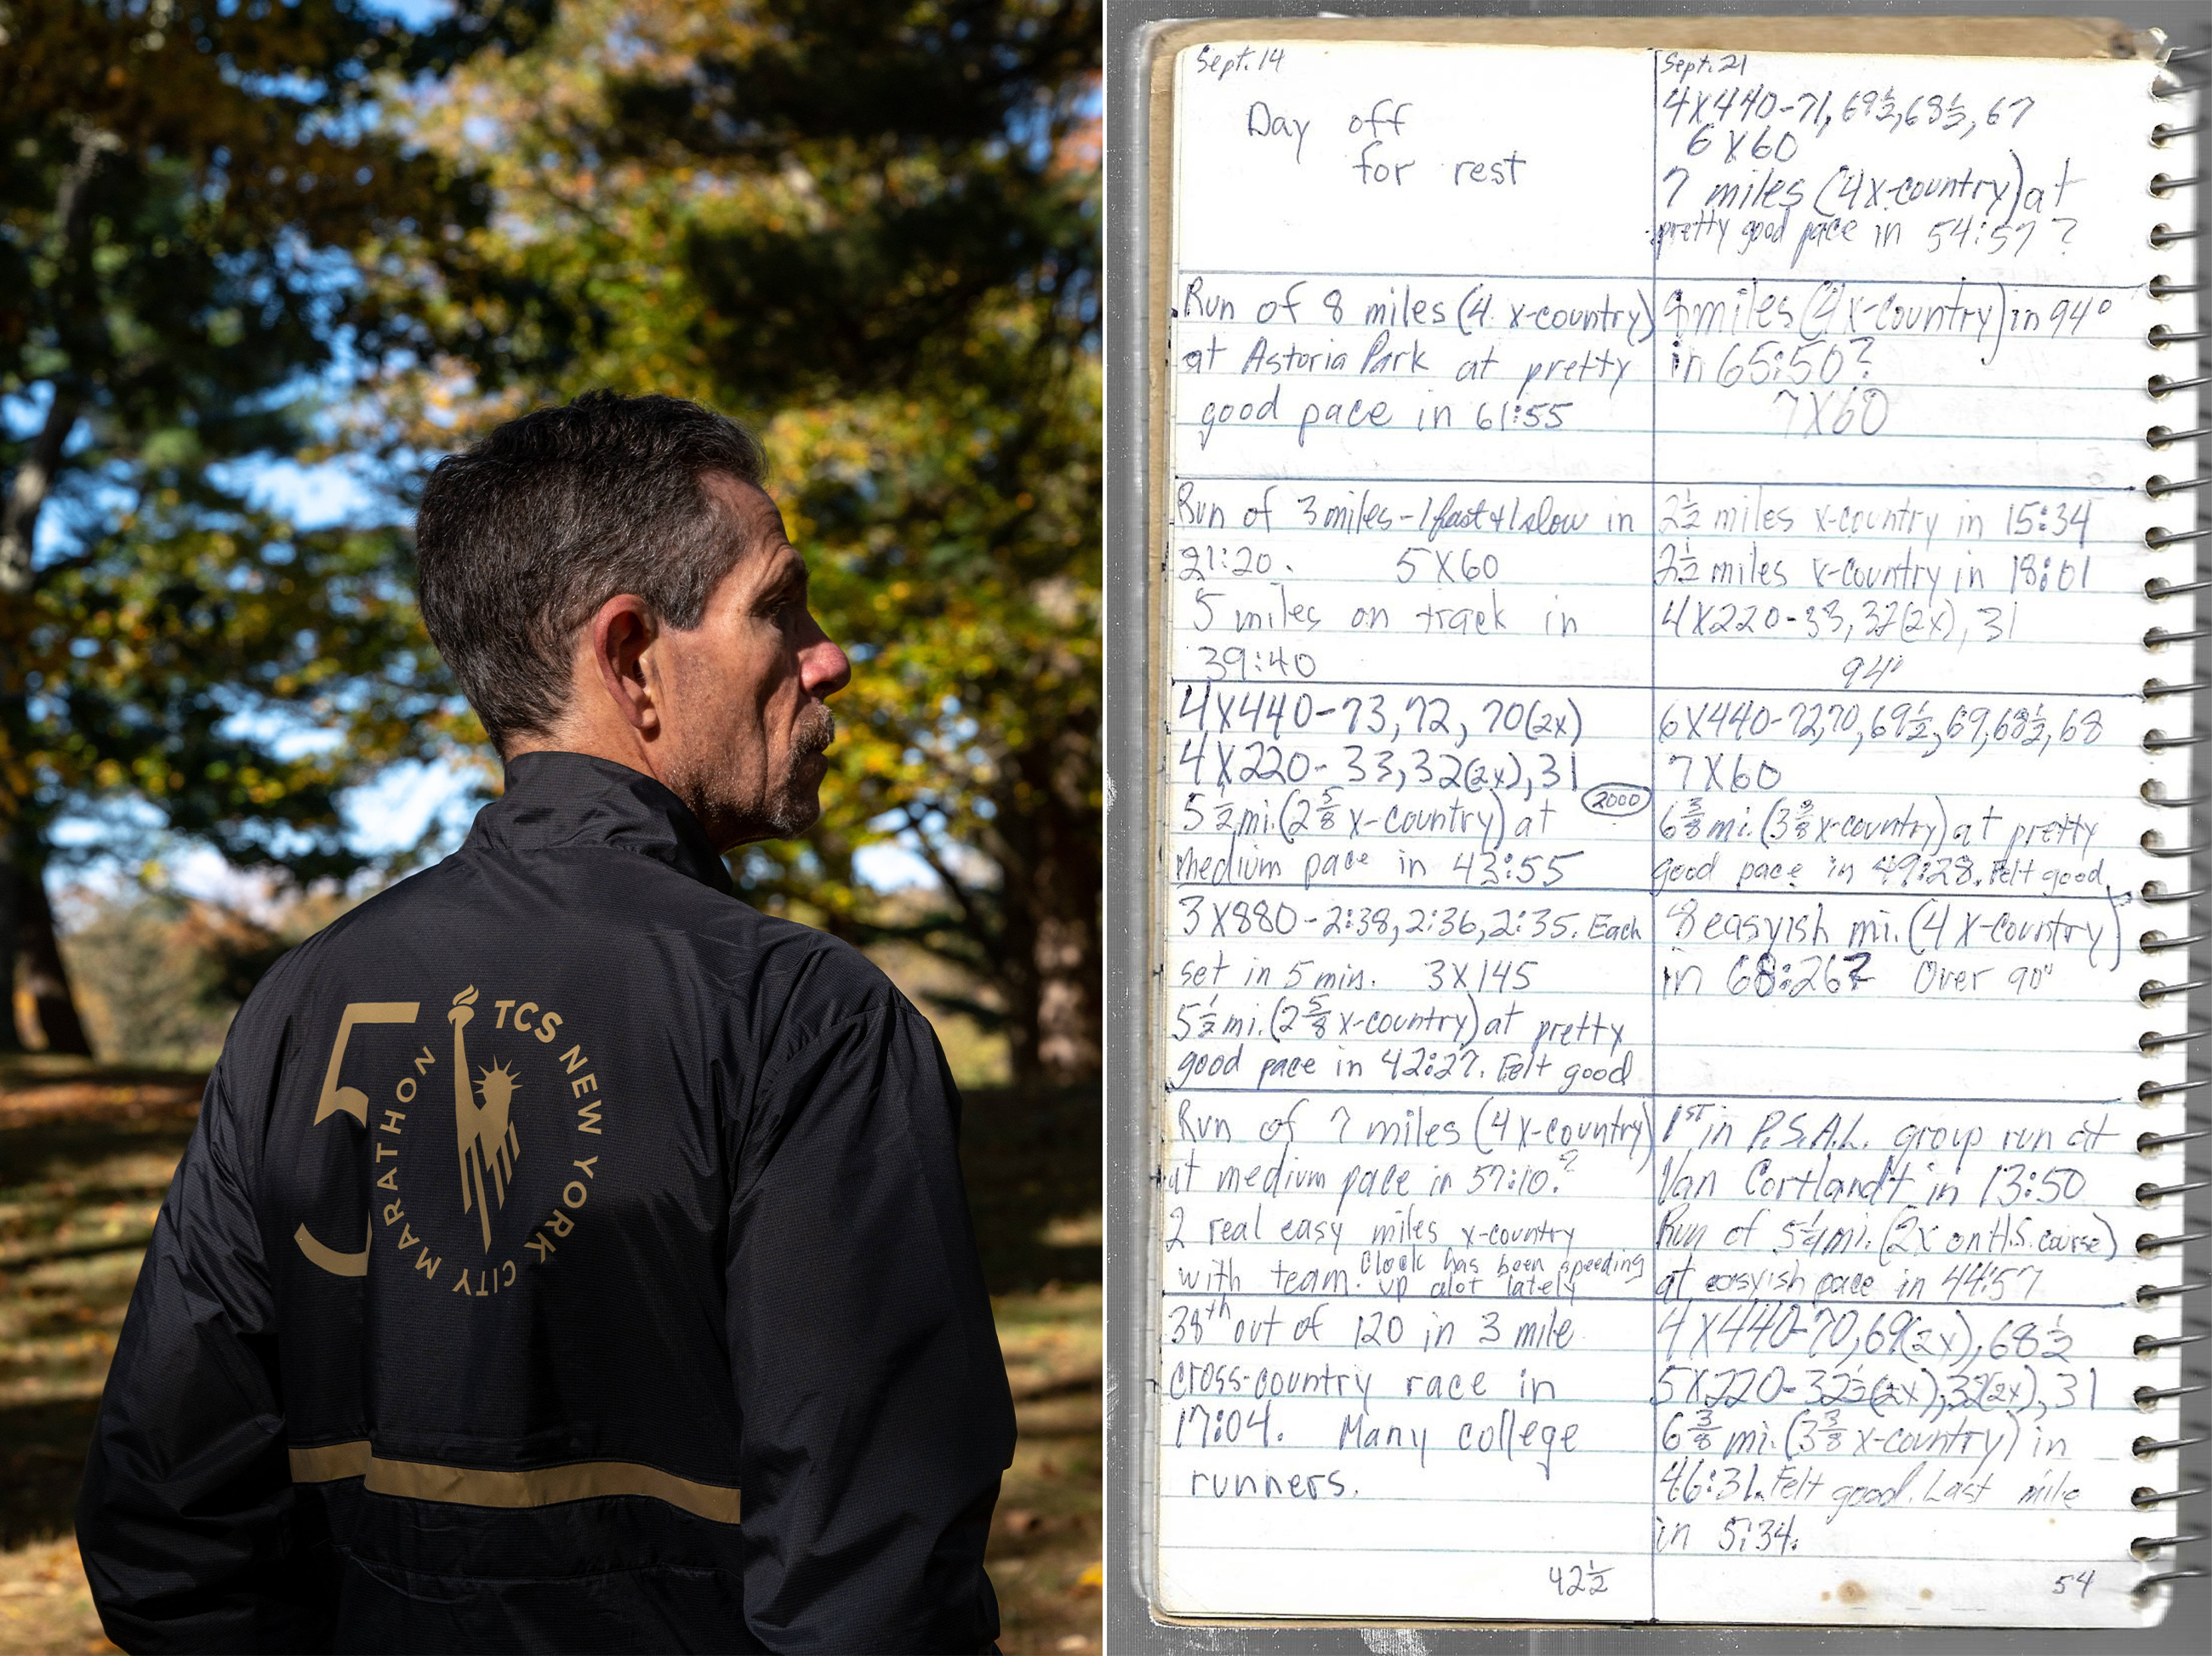 5
TCS NEW YORK CITY MARATHON
Sept. 14
Day off
for rest
Run of 8 miles (4 x-country)
at Astoria Park at pretty
good pace in 61:55
Run of 3 miles - 1 fast + 1 slow in
21:20. 5X60
5 miles on track in
39:40
4X440-73, 72, 70(2x)
4X220-33, 32(2x), 31
2000
5 1/2 mi. (2 5/8 x-country) at
medium pace in 43:55
3X880-2:38, 2:36, 2:35. Each
set in 5 min. 3X145
5 1/2 mi. (2 5/8 x-country) at pretty
good pace in 42:27. Felt good
Run of 7 miles (4 x-country)
at medium pace in 57:10.?
2 real easy miles x-country
with team. Clock has been speeding
up alot lately
38th out of 120 in 3 mile
cross-country race in
17:04. Many college
runners.
42 1/2
Sept. 21
4X440-71, 69 1/2, 68 1/2, 67
6X60
7 miles (4 x-country) at
pretty good pace in 54:57?
miles (4 x-country) in 94°
in 65:50?
7X60
2 1/2 miles x-country in 15:34
2 1/2 miles x-country in 18:01
4X220-33, 32(2x), 31
94°
6X440-72, 70, 69 1/2, 69, 68 1/2, 68
7X60
6 3/8 mi. (3 3/8 x-country) at pretty
good pace in 49:28. Felt good
8 easyish mi. (4 x-country)
in 68:26? Over 90°
1st in P.S.A.L. group run at
Van Cortlandt in 13:50
Run of 5 1/4 mi. (2x on H.S. course)
at easyish pace in 44:57
4X440-70, 69(2x), 68 1/2
5X220-32 1/2(2x), 32(2x), 31
6 3/8 mi. (3 3/8 x-country) in
46:31. Felt good. Last mile
in 5:34.
54